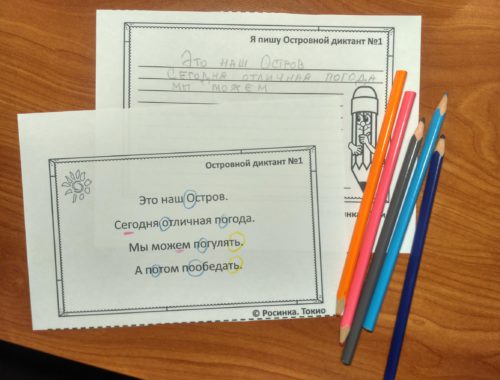 Я пишу Островной диктант №1
Это наш Остров
Сегодна отличная погода
мы можем
Островной диктант №1
Это наш Остров.
Сегодня отличная погода.
Мы можем погулять.
А потом пообедать.
© Росинка. Токио